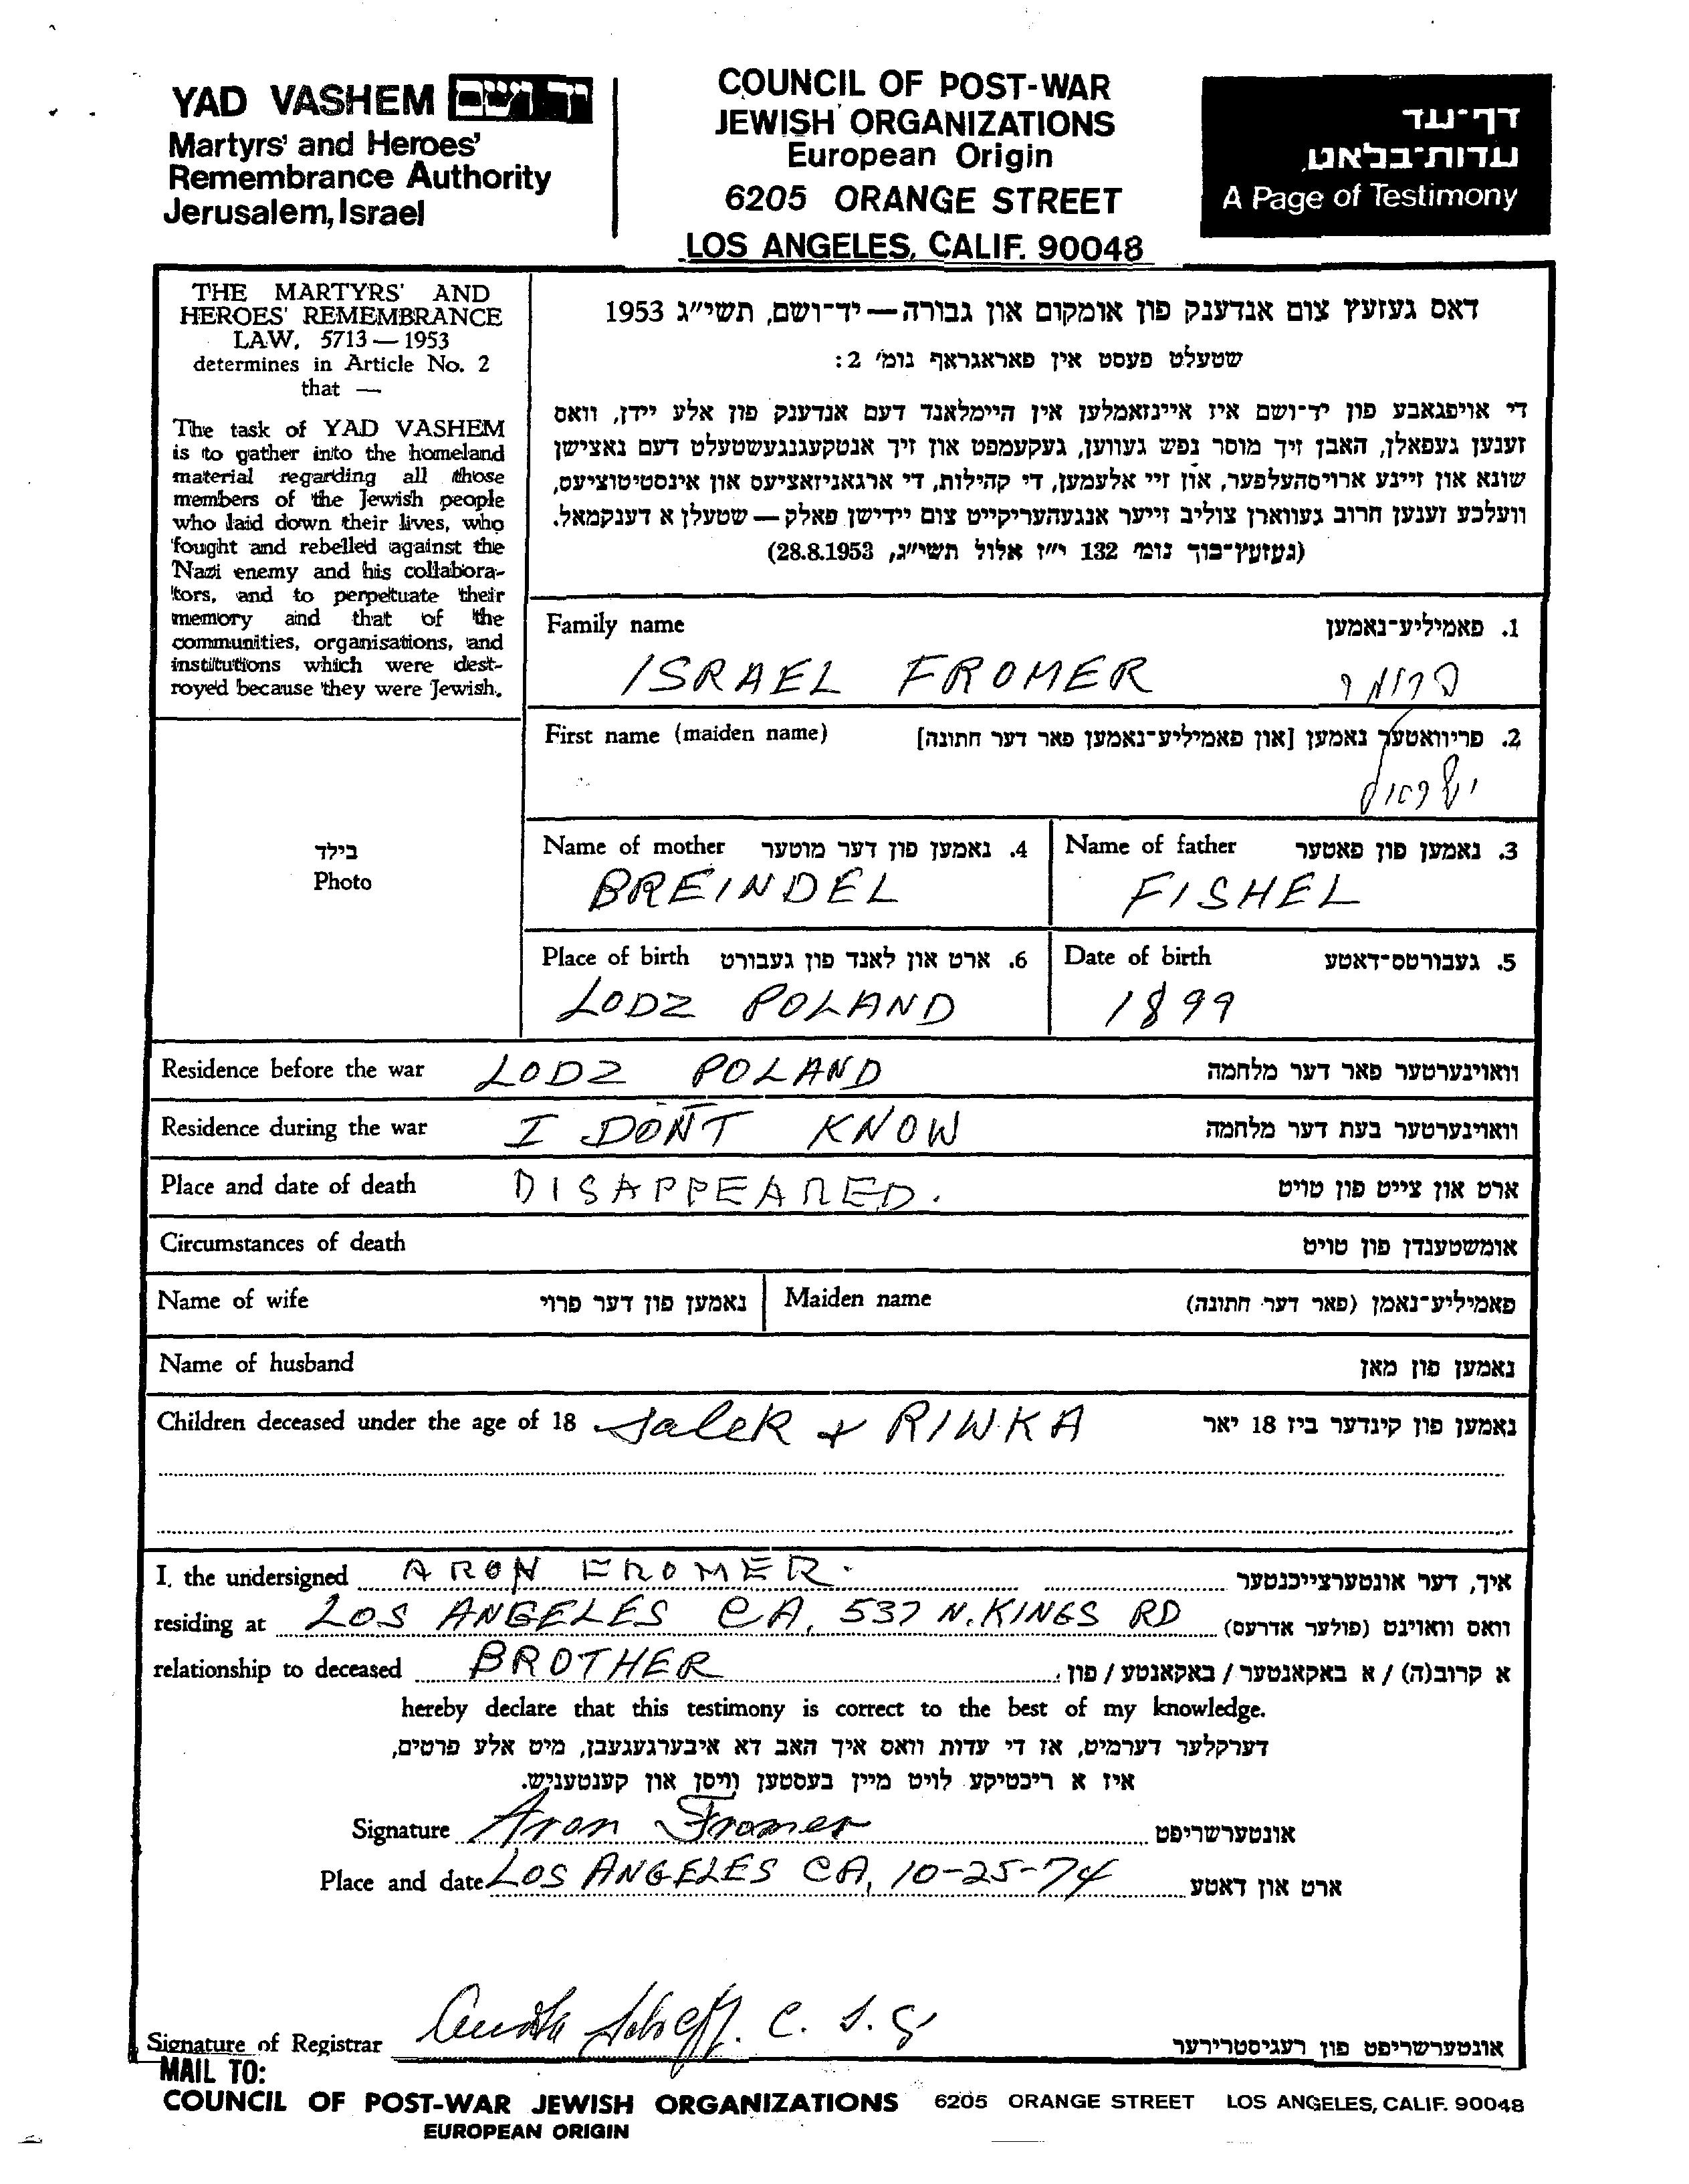 YAD VASHEM יד ושם
Martyrs' and Heroes'
Remembrance Authority
Jerusalem, Israel
COUNCIL OF POST-WAR
JEWISH ORGANIZATIONS
European Origin
6205 ORANGE STREET
LOS ANGELES, CALIF. 90048
דף-עד
עדות-בלאט
A Page of Testimony
THE MARTYRS' AND
HEROES' REMEMBRANCE
LAW, 5713 — 1953
determines in Article No. 2
that —
The task of YAD VASHEM
is to gather into the homeland
material regarding all those
members of the Jewish people
who laid down their lives, who
fought and rebelled against the
Nazi enemy and his collabora-
tors, and to perpetuate their
memory and that of the
communities, organisations, and
institutions which were dest-
royed because they were Jewish.
בילד
Photo
דאס געזעץ צום אנדענק פון אומקום און גבורה — יד-ושם, תשי״ג 1953
שטעלט פעסט אין פאראגראף נומ׳ 2:
די אויפגאבע פון יד-ושם איז איינזאמלען אין היימלאנד דעם אנדענק פון אלע יידן, וואס
זענען געפאלן, האבן זיך מוסר נפש געווען, געקעמפט און זיך אנטקעגנגעשטעלט דעם נאצישן
שונא און זיינע ארויסהעלפער, און זיי אלעמען, די קהילות, די ארגאניזאציעס און אינסטיטוציעס,
וועלכע זענען חרוב געווארן צוליב זייער אנגעהעריקייט צום יידישן פאלק — שטעלן א דענקמאל.
(געזעץ-בוך נומ׳ 132 י״ז אלול תשי״ג, 28.8.1953)
Family name 1. פאמיליע-נאמען
ISRAEL FROMER פרומר
First name (maiden name) 2. פריוואטער נאמען [און פאמיליע-נאמען פאר דער חתונה]
ישראל
Name of mother 4. נאמען פון דער מוטער Name of father 3. נאמען פון פאטער
BREINDEL FISHEL
Place of birth 6. ארט און לאנד פון געבורט Date of birth 5. געבורטס-דאטע
LODZ POLAND 1899
Residence before the war LODZ POLAND וואוינערטער פאר דער מלחמה
Residence during the war I DON'T KNOW וואוינערטער בעת דער מלחמה
Place and date of death DISAPPEARED. ארט און צייט פון טויט
Circumstances of death אומשטענדן פון טויט
Name of wife נאמען פון דער פרוי Maiden name פאמיליע-נאמן (פאר דער חתונה)
Name of husband נאמען פון מאן
Children deceased under the age of 18 Salek + RIWKA נאמען פון קינדער ביז 18 יאר
I, the undersigned ARON FROMER. איך, דער אונטערצייכנטער
residing at LOS ANGELES CA, 537 N. KINGS RD וואס וואוינט (פולער אדרעס)
relationship to deceased BROTHER א קרוב(ה) / א באקאנטער / באקאנטע / פון
hereby declare that this testimony is correct to the best of my knowledge.
דערקלער דערמיט, אז די עדות וואס איך האב דא איבערגעגעבן, מיט אלע פרטים,
איז א ריכטיקע לויט מיין בעסטען וויסן און קענטעניש.
Signature Aron Fromer אונטערשריפט
Place and date LOS ANGELES CA, 10-25-74 ארט און דאטע
Signature of Registrar C. S. G אונטערשריפט פון רעגיסטרירער
MAIL TO:
COUNCIL OF POST-WAR JEWISH ORGANIZATIONS 6205 ORANGE STREET LOS ANGELES, CALIF. 90048
EUROPEAN ORIGIN